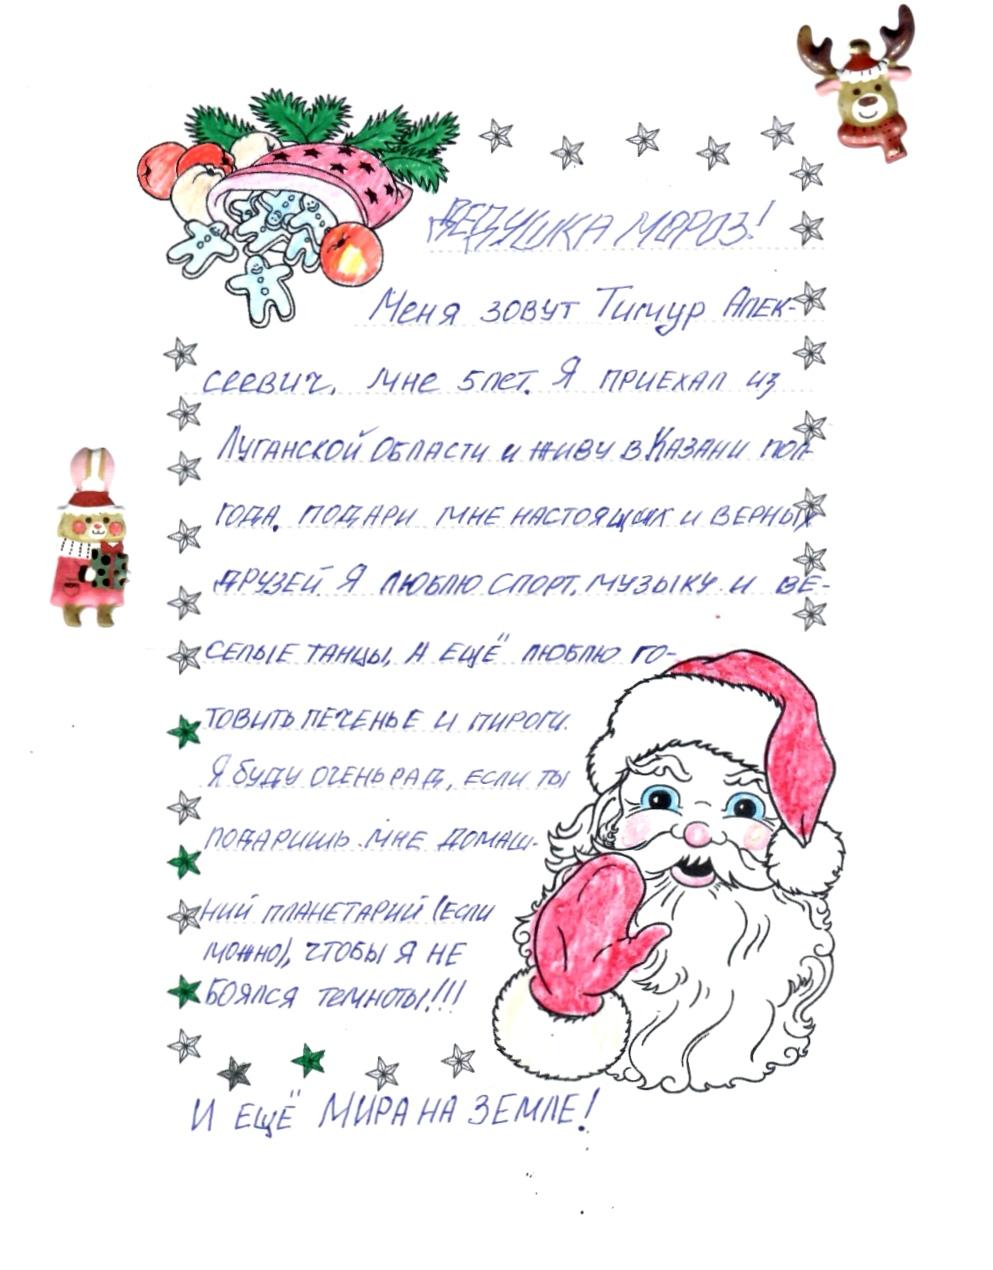 ДЕДУШКА МОРОЗ!
Меня зовут Тимур Алек-
сеевич, мне 5 лет. Я приехал из
Луганской области и живу в Казани пол-
года. Подари мне настоящих и верных
друзей Я люблю спорт, музыку и ве-
селые танцы, а ещё люблю го-
товить печенье и пироги.
Я буду очень рад, если ты
подаришь мне домаш-
ний планетарий (если
можно), чтобы я не
боялся темноты!!!
И ЕЩЁ МИРА НА ЗЕМЛЕ!